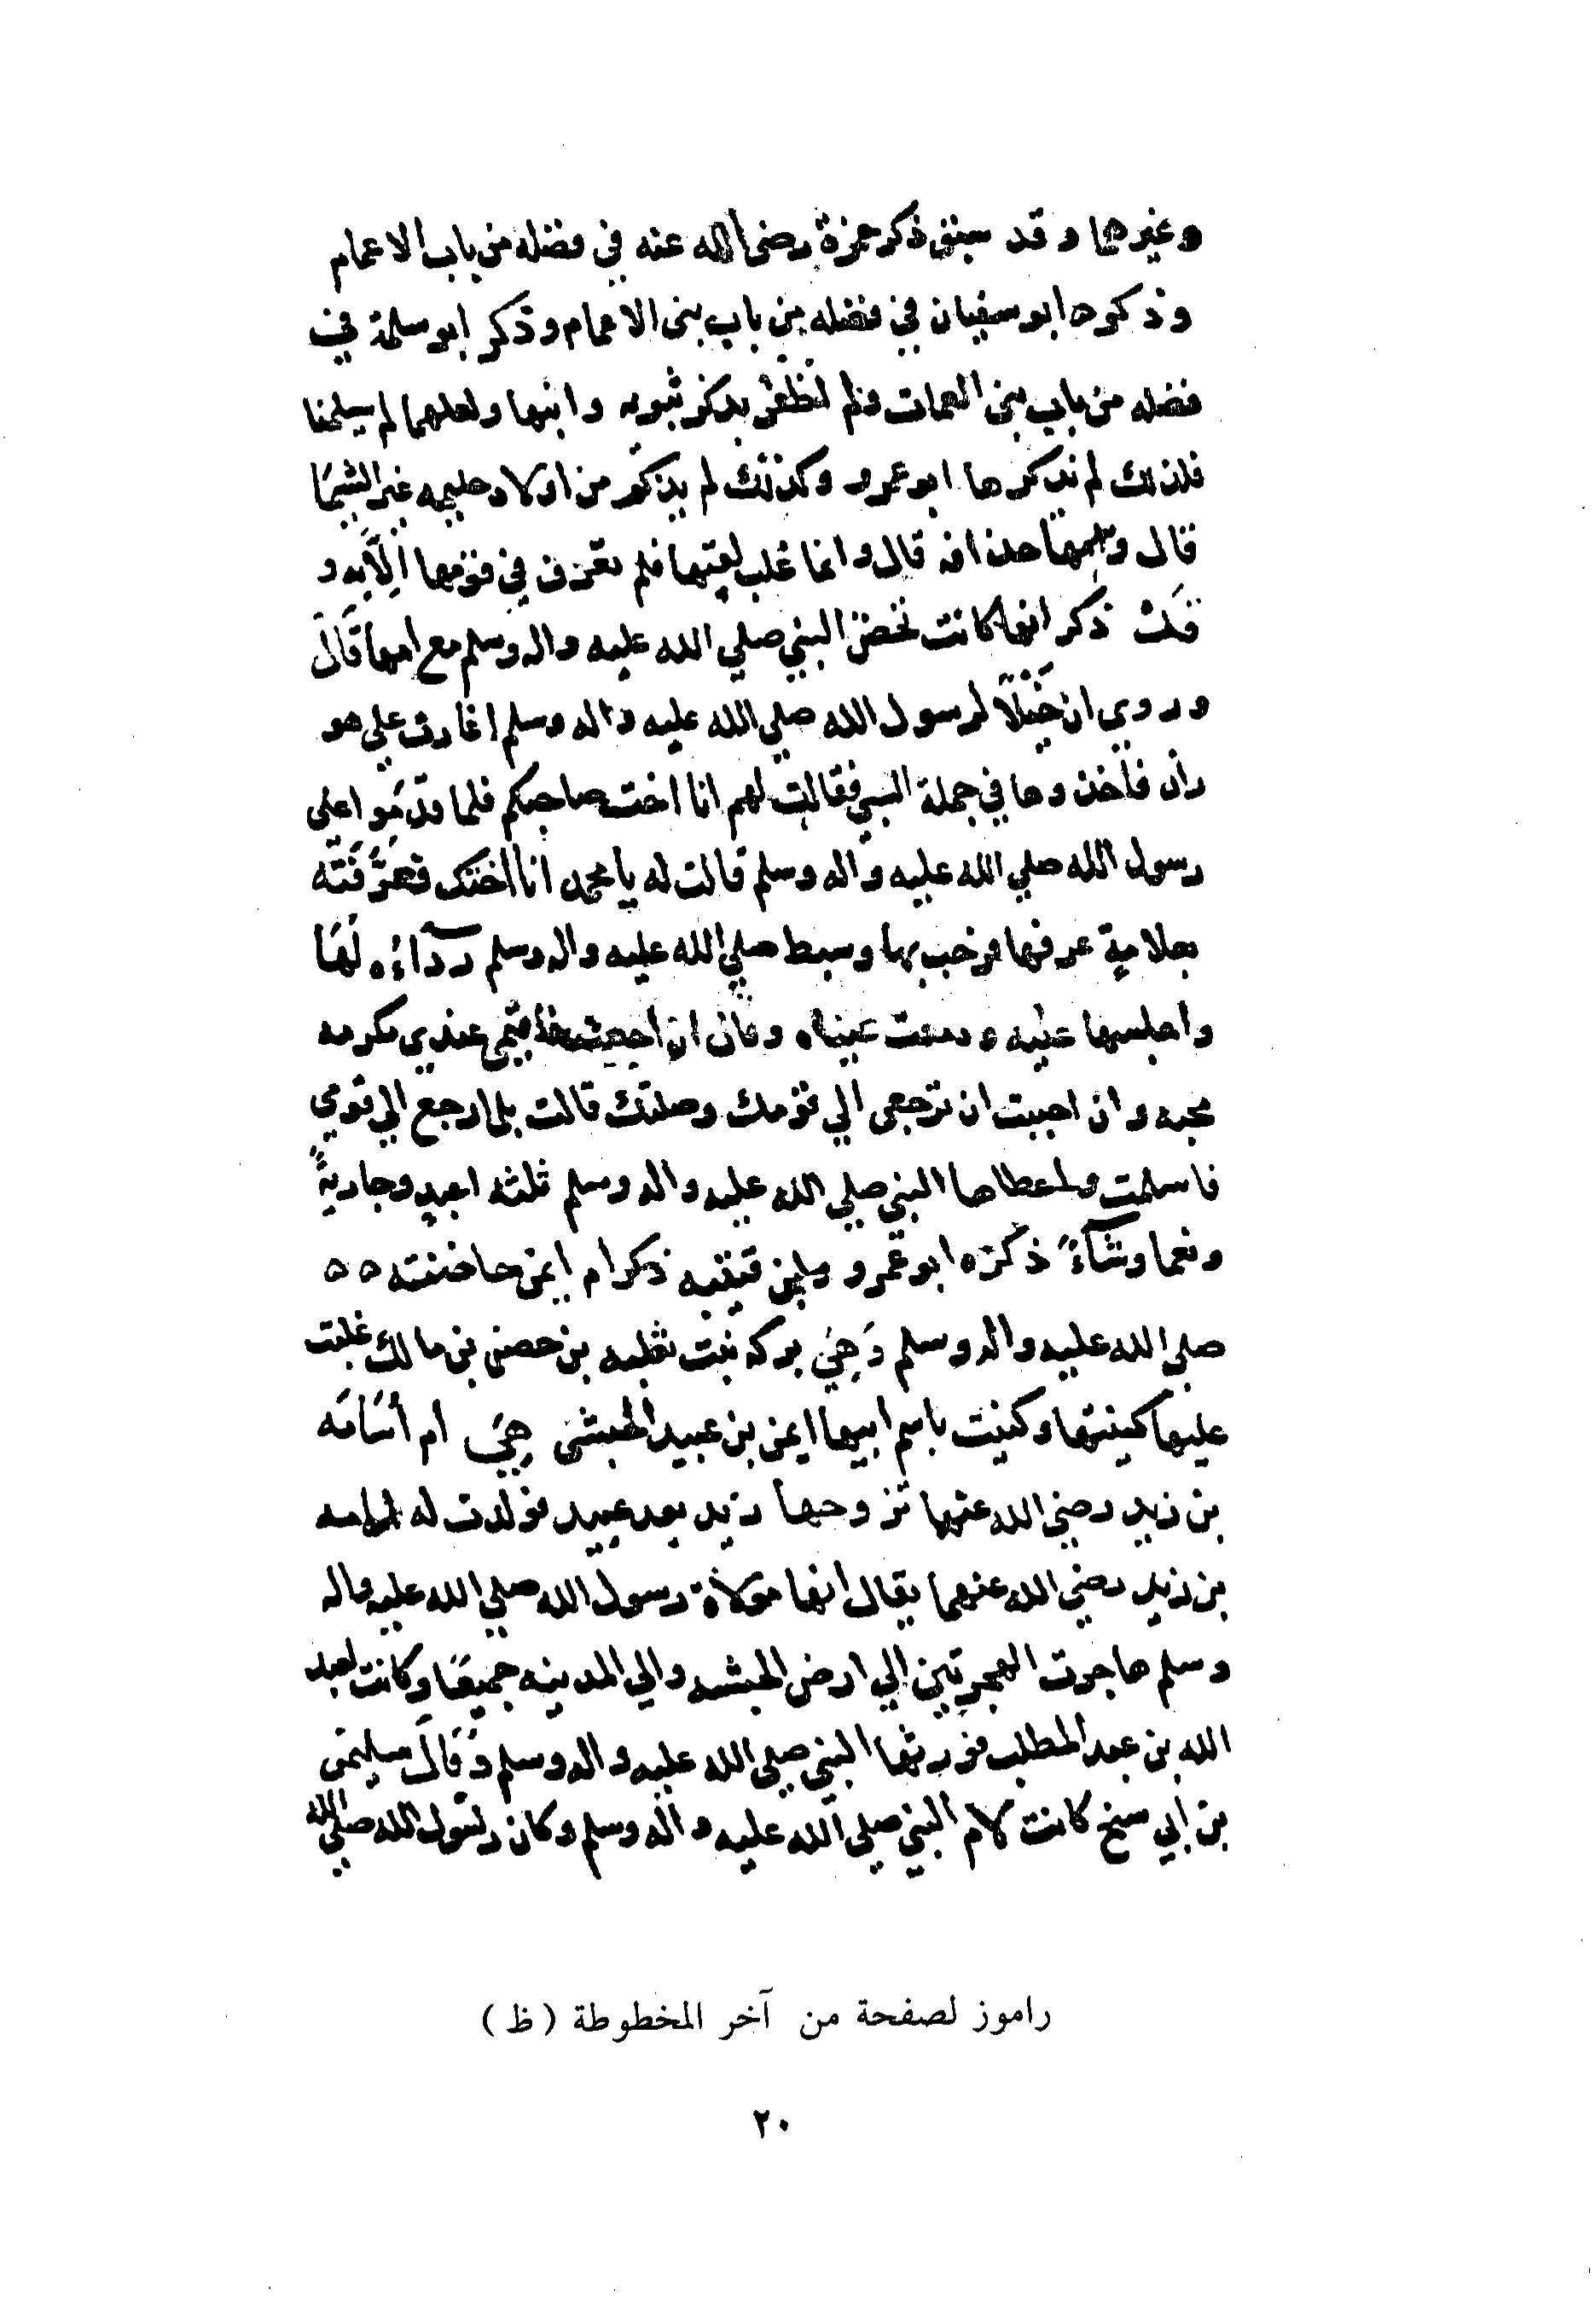 وغيرها وقد سبق ذكر حمزة رضى الله عنه في فضله من باب الاعمام
وذكر ابو سفيان في فضله من باب بنى الاعمام وذكر ابو سلمة في
فضله من باب بنى العمات ولم نظفر بذكر ثويبه وابنها ولعلهما لم يسلما
فلذلك لم يذكرها ابو عمرو وكذلك لم يذكر من اولاد حليمه غير الشيما
قال و حذافه قال وانما غلب لقبها فلم تعرف في قومها اِلّا به و
قَد ذكر انها كانت تحضن النبي صلي الله عليه واله وسلم مع امها قَالَ
وروي ان خَيْلًا لرسول الله صلي الله عليه واله وسلم اغارت علي هو
زان فاخذوها في جملة السبي فقالت لهم انا اخت صاحبكم فلما قدّمَوا علي
رسول الله صلي الله عليه واله وسلم قالت له يا محمد انا اختك فعَرَّفَتَه
بعلامة عرفها فرحب بها وبسط صلي الله عليه واله وسلم ردآءُه لَهَا
واجلسها عليه ودمعت عيناه وقال ان احببت فاقيمى عندي مكرمه
محببه وان احببت ان ترجعى الي قومك وصلتك قالت بلى ارجع الي قومي
فاسلمت واعطاها النبي صلي الله عليه واله وسلم ثلثه اعبدٍ وجاريةً
ونعما وشآءً ذكره ابو عمرو وابن قتيبه ذكر ام ايمن حاضنته ه ه
صلى الله عليه واله وسلم وَهِيَ بركه بنت ثعلبه بن حصن بن مالك غلبت
عليها كينتها وكنيت باسم ابيها ايمن بن عبيد الحبشى هِيَ ام أسَامَه
بن زيد رضي الله عنهما تزوجها زيد بعد عبيد فولدت له اسامه
بن زيد رضي الله عنهما يقال انها مَوْلاة رسول الله صلي الله عليه واله
وسلم هاجرت الهجرتين الي ارض الحبشه والي المدينه جميعًا وكانت لعبد
الله بن عبد المطلب فورثها النبي صلي الله عليه واله وسلم وَقَالَ سليمن
بن ابي شيخ كانت لام النبي صلي الله عليه واله وسلم وكان رسول الله صلي الله
راموز لصفحة من آخر المخطوطة (ظ)
٢٠